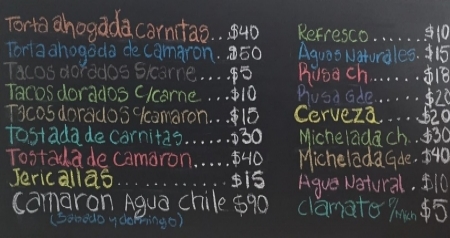 Torta ahogada carnitas...$40
Torta ahogada de camaron..$50
Tacos dorados S/carne....$5
Tacos dorados c/carne....$10
Tacos dorados c/camaron...$15
tostada de carnitas......$30
Tostada de camaron......$40
Jericallas............$15
Camaron Agua chile $90
(Sabado y domingo)
Refresco....$10
Aguas Naturales.$15
Rusa ch.....$18
Rusa Gde....$20
Cerveza....$20
Michelada ch.$30
Michelada Gde.$40
Agua Natural.$10
clamato P/Mich $5